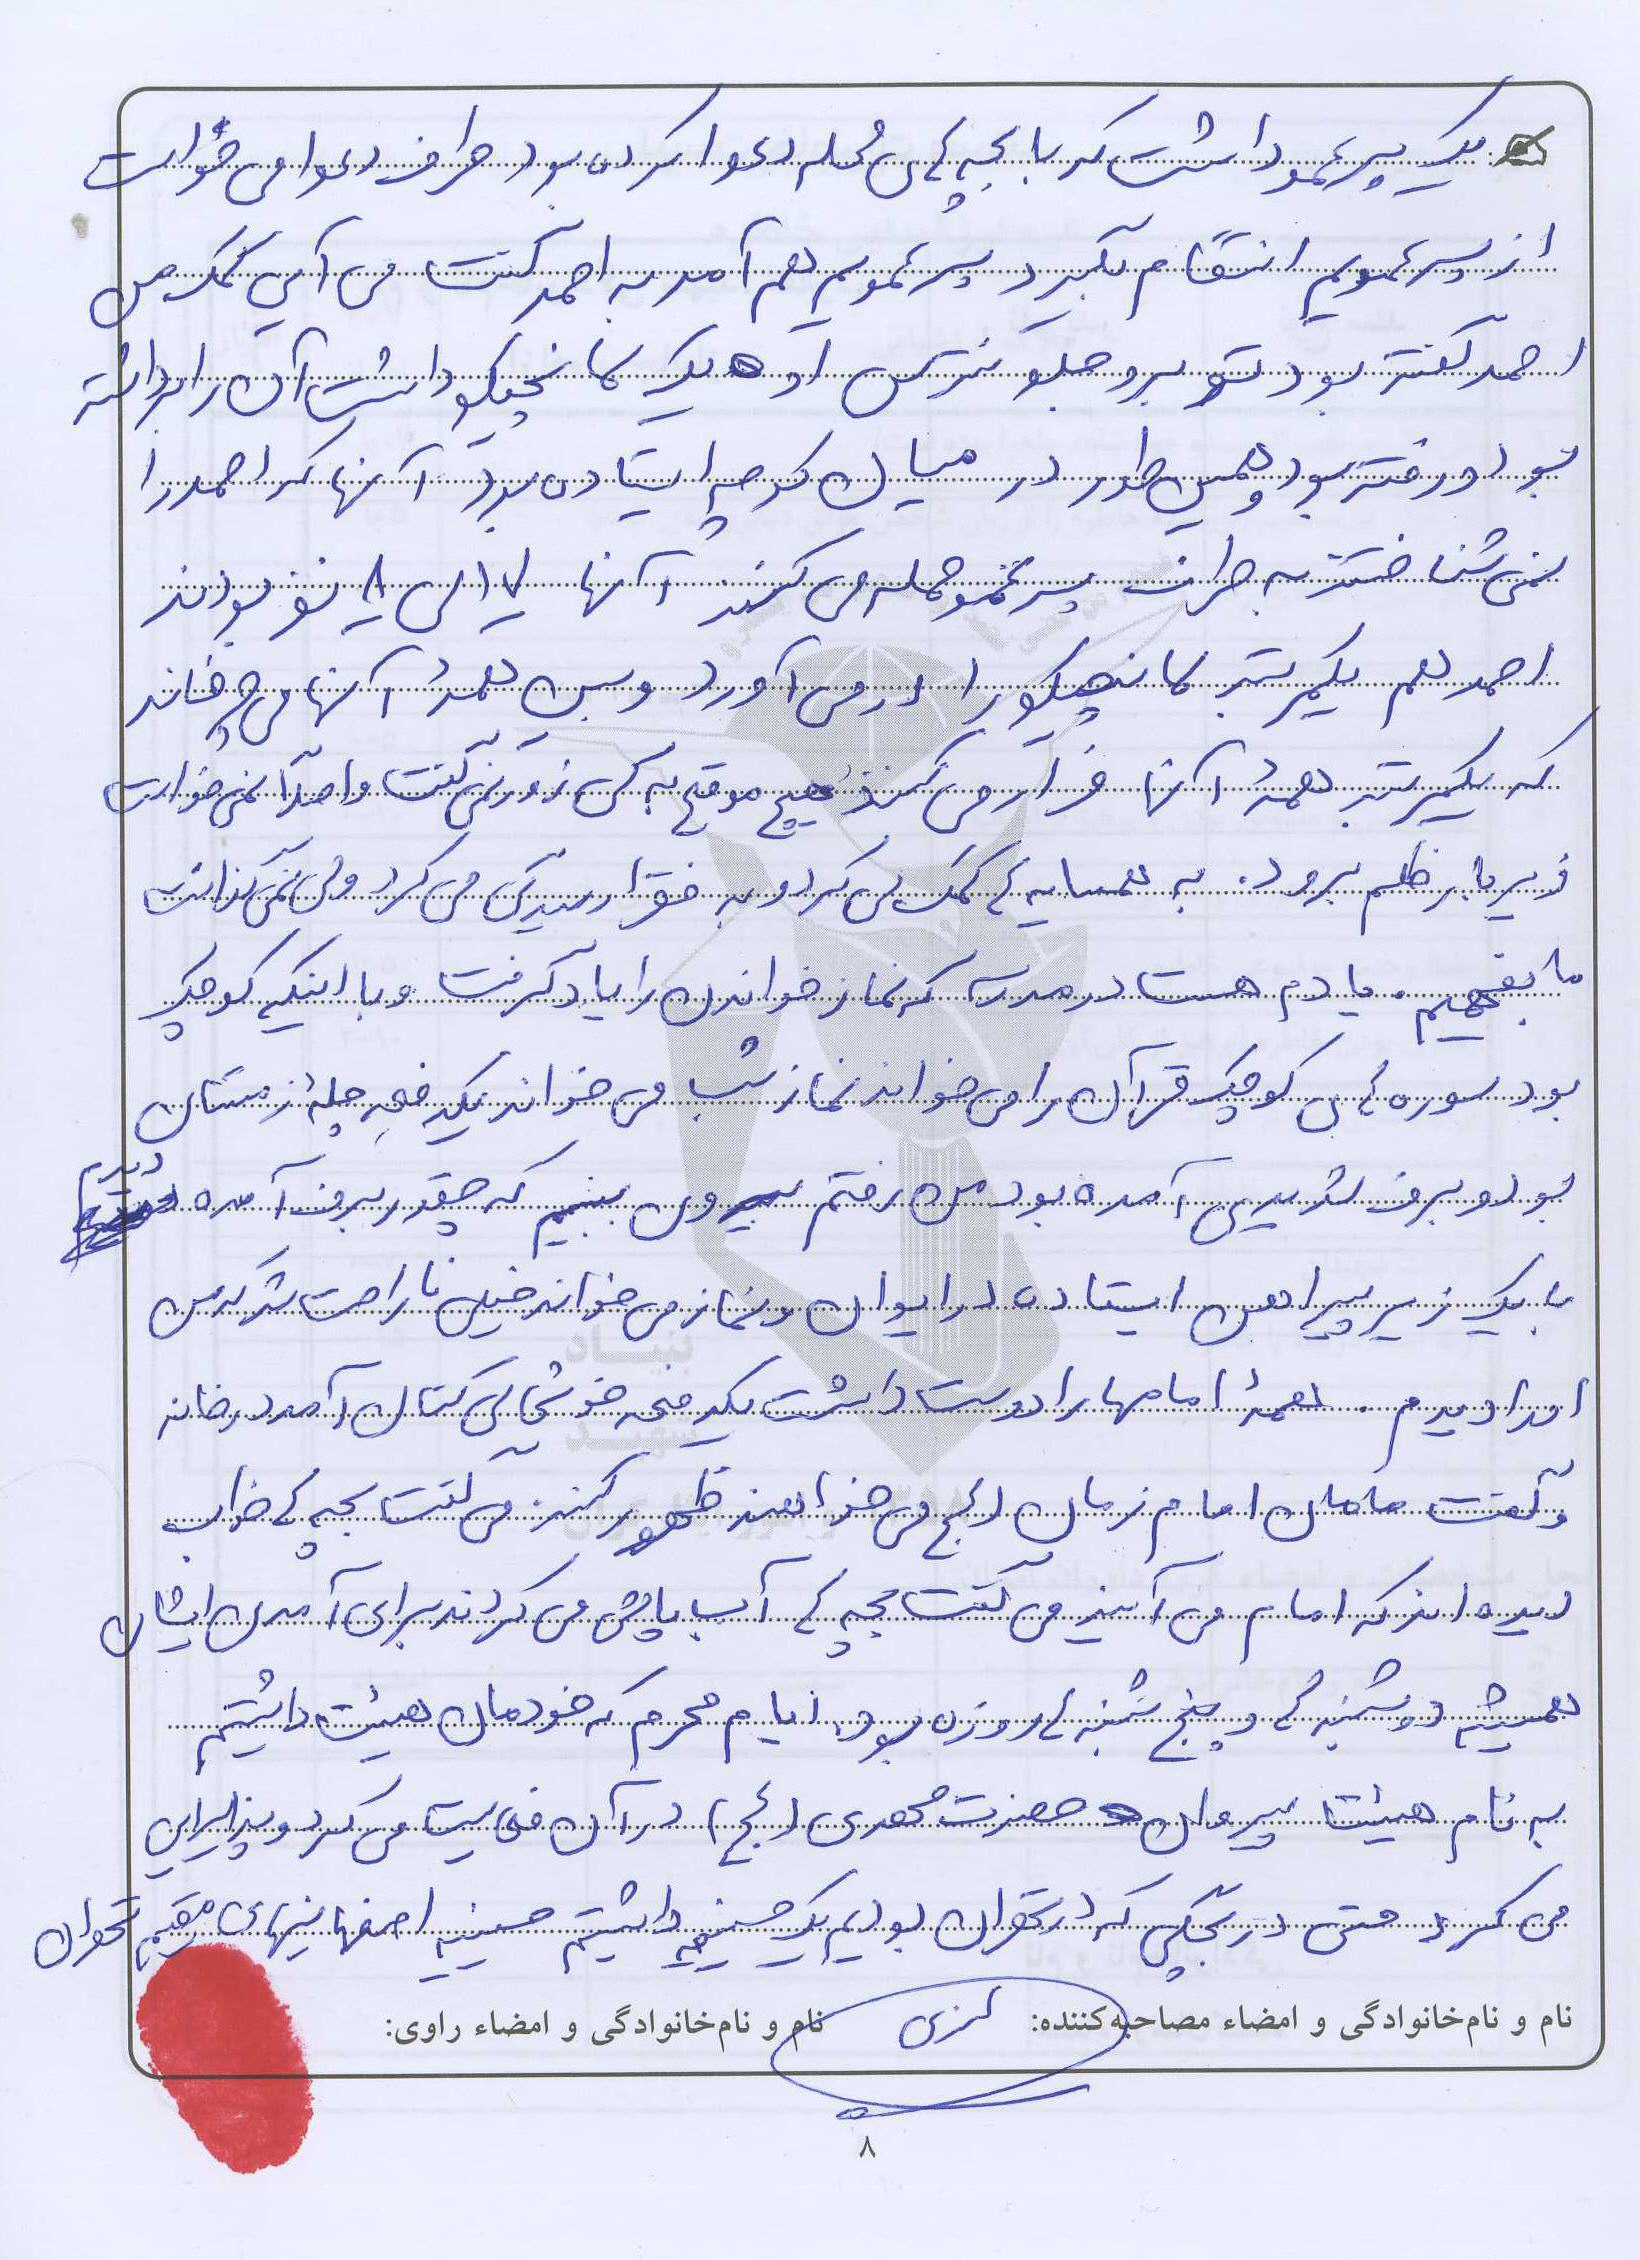 یک پسر عمو داشت که با بچه های محله دعوا کرده بود طرف دعوا می خواست
از پسر عمویم انتقام بگیرد پسر عمویم هم آمد به احمد گفت می آیی کمک من
احمد گفته بود تو برو جلو نترس او یک نانچیکو داشت آن را برداشته
بود و رفته بود همین طور در میان کوچه ایستاده بود آنها که احمد را
نمی شناختند به طرف پسر عمو حمله می کنند آنها ۷ الی ۸ نفر بودند
احمد هم یکمرتبه نانچیکو را در می آورد و بین همهٔ آنها می چرخاند
که یکمرتبه همهٔ آنها فرار می کنند هیچ موقع به کسی زور نمی گفت و اصلاً نمی خواست
زیر بار ظلم برود. به همسایه ها کمک می کرد و به فقرا رسیدگی می کرد ولی نمی گذاشت
ما بفهمیم. یادم هست در مدرسه که نماز خواندن را یاد گرفت و با اینکه کوچک
بود سوره های کوچک قرآن را می خواند نماز شب می خواند یکدفعه چلهٔ زمستان
بود و برف شدیدی آمده بود من رفتم بیرون ببینم که چقدر برف آمده دیدم
با یک زیر پیراهن ایستاده در ایوان و نماز می خواند خیلی ناراحت شد که من
او را دیدم. همهٔ امامها را دوست داشت یکدفعه خوشحال کنان آمد در خانه
و گفت مامان امام زمان (عج) می خواهند ظهور کنند می گفت بچه ها خواب
دیده اند که امام می آیند می گفت بچه ها آب پاشی می کردند برای آمدن ایشان
همیشه دوشنبه ها و پنج شنبه ها روزه بود، ایام محرم که خودمان هیئت داشتیم
به نام هیئت پیروان حضرت مهدی (عج) در آن فعالیت می کرد و پذیرایی
می کرد حتی در بچگی که در تهران بودیم یک حسینیه داشتیم حسینیه اصفهانیهای مقیم تهران
نام و نام‌خانوادگی و امضاء مصاحبه‌کننده: نام و نام‌خانوادگی و امضاء راوی:
۸
بنیاد
شهید